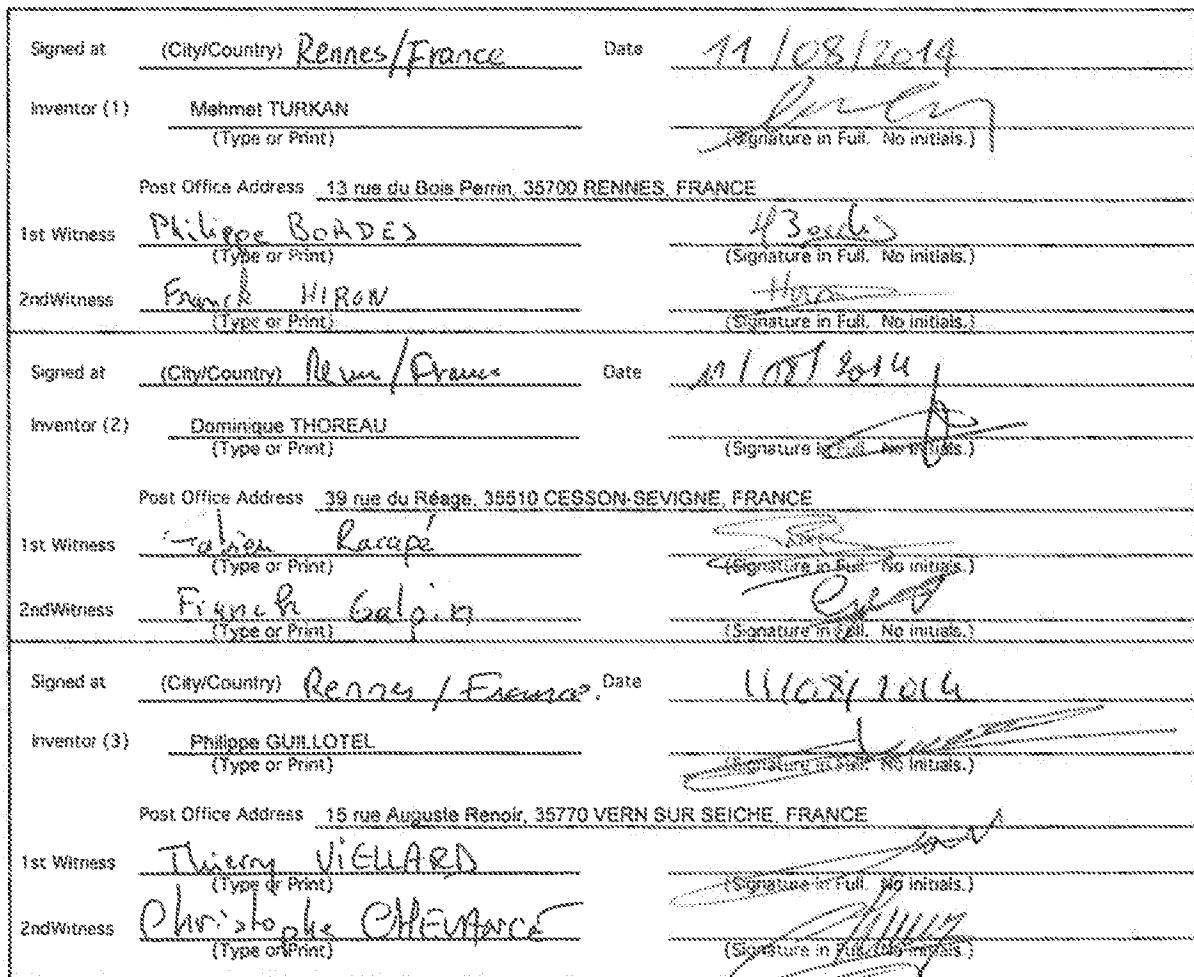 Signed at (City/Country) Rennes/France Date 11/08/2014
Inventor (1) Mehmet TURKAN
(Type or Print) (Signature in Full. No initials.)
Post Office Address 13 rue du Bois Perrin, 35700 RENNES, FRANCE
1st Witness Philippe BORDES
(Type or Print) (Signature in Full. No initials.)
2ndWitness Franck HIRON Hiron
(Type or Print) (Signature in Full. No initials.)
Signed at (City/Country) Rennes/France Date 11/08/2014
Inventor (2) Dominique THOREAU
(Type or Print) (Signature in Full. No initials.)
Post Office Address 39 rue du Réage, 35510 CESSON-SEVIGNE, FRANCE
1st Witness Fabien Racapé
(Type or Print) (Signature in Full. No initials.)
2ndWitness Franck Galpin
(Type or Print) (Signature in Full. No initials.)
Signed at (City/Country) Rennes / France. Date 11/08/2014
Inventor (3) Philippe GUILLOTEL
(Type or Print) (Signature in Full. No initials.)
Post Office Address 15 rue Auguste Renoir, 35770 VERN SUR SEICHE, FRANCE
1st Witness Thierry ViELLARD
(Type or Print) (Signature in Full. No initials.)
2ndWitness Christophe CHEVANCE
(Type or Print) (Signature in Full. No initials.)